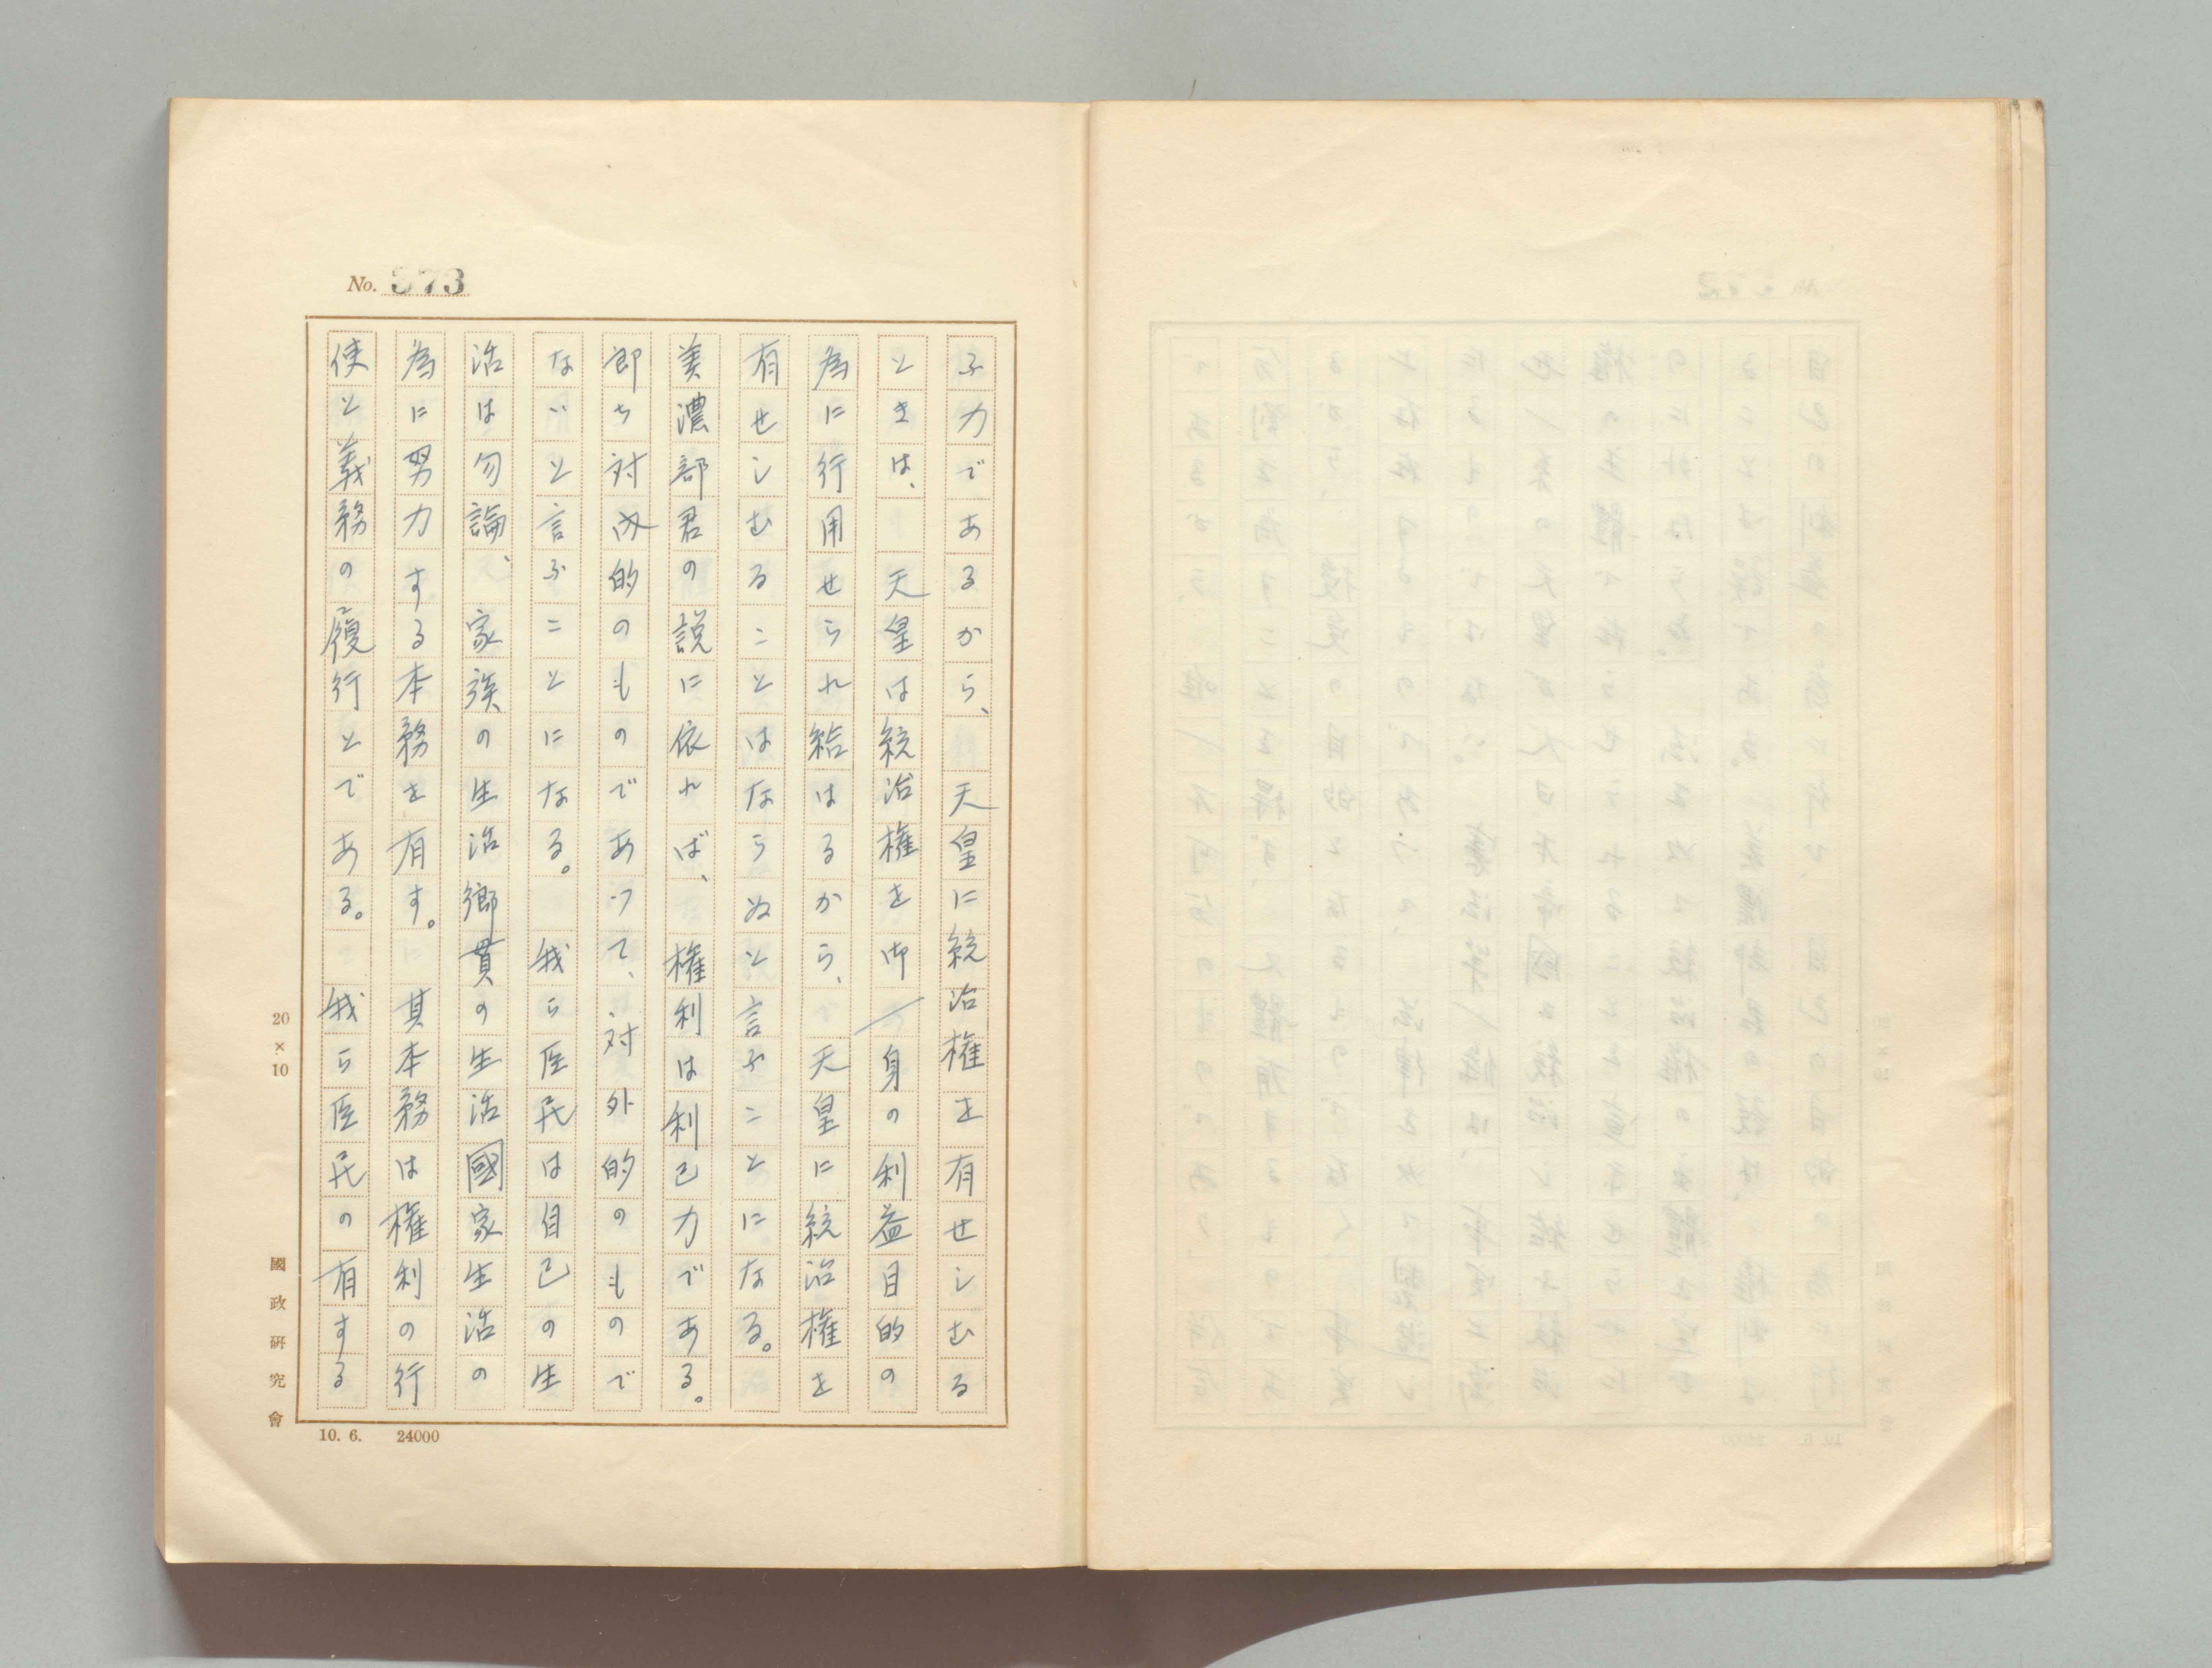 No. 373
ふ力であるから、　天皇に統治権を有せしむる
ときは、　天皇は統治権を御一身の利益目的の
為に行用せられ給はるから、　天皇に統治権を
有せしむることはならぬと言ふことになる。
美濃部君の説に依れば、　権利は利己力である。
即ち対内的のものであつて、対外的のもので
ないと言ふことになる。　我ら臣民は自己の生
活は勿論、　家族の生活郷貫の生活國家生活の
為に努力する本務を有す。　其本務は権利の行
使と義務の履行とである。　我ら臣民の有する
20×10
國政研究會
10. 6.　24000